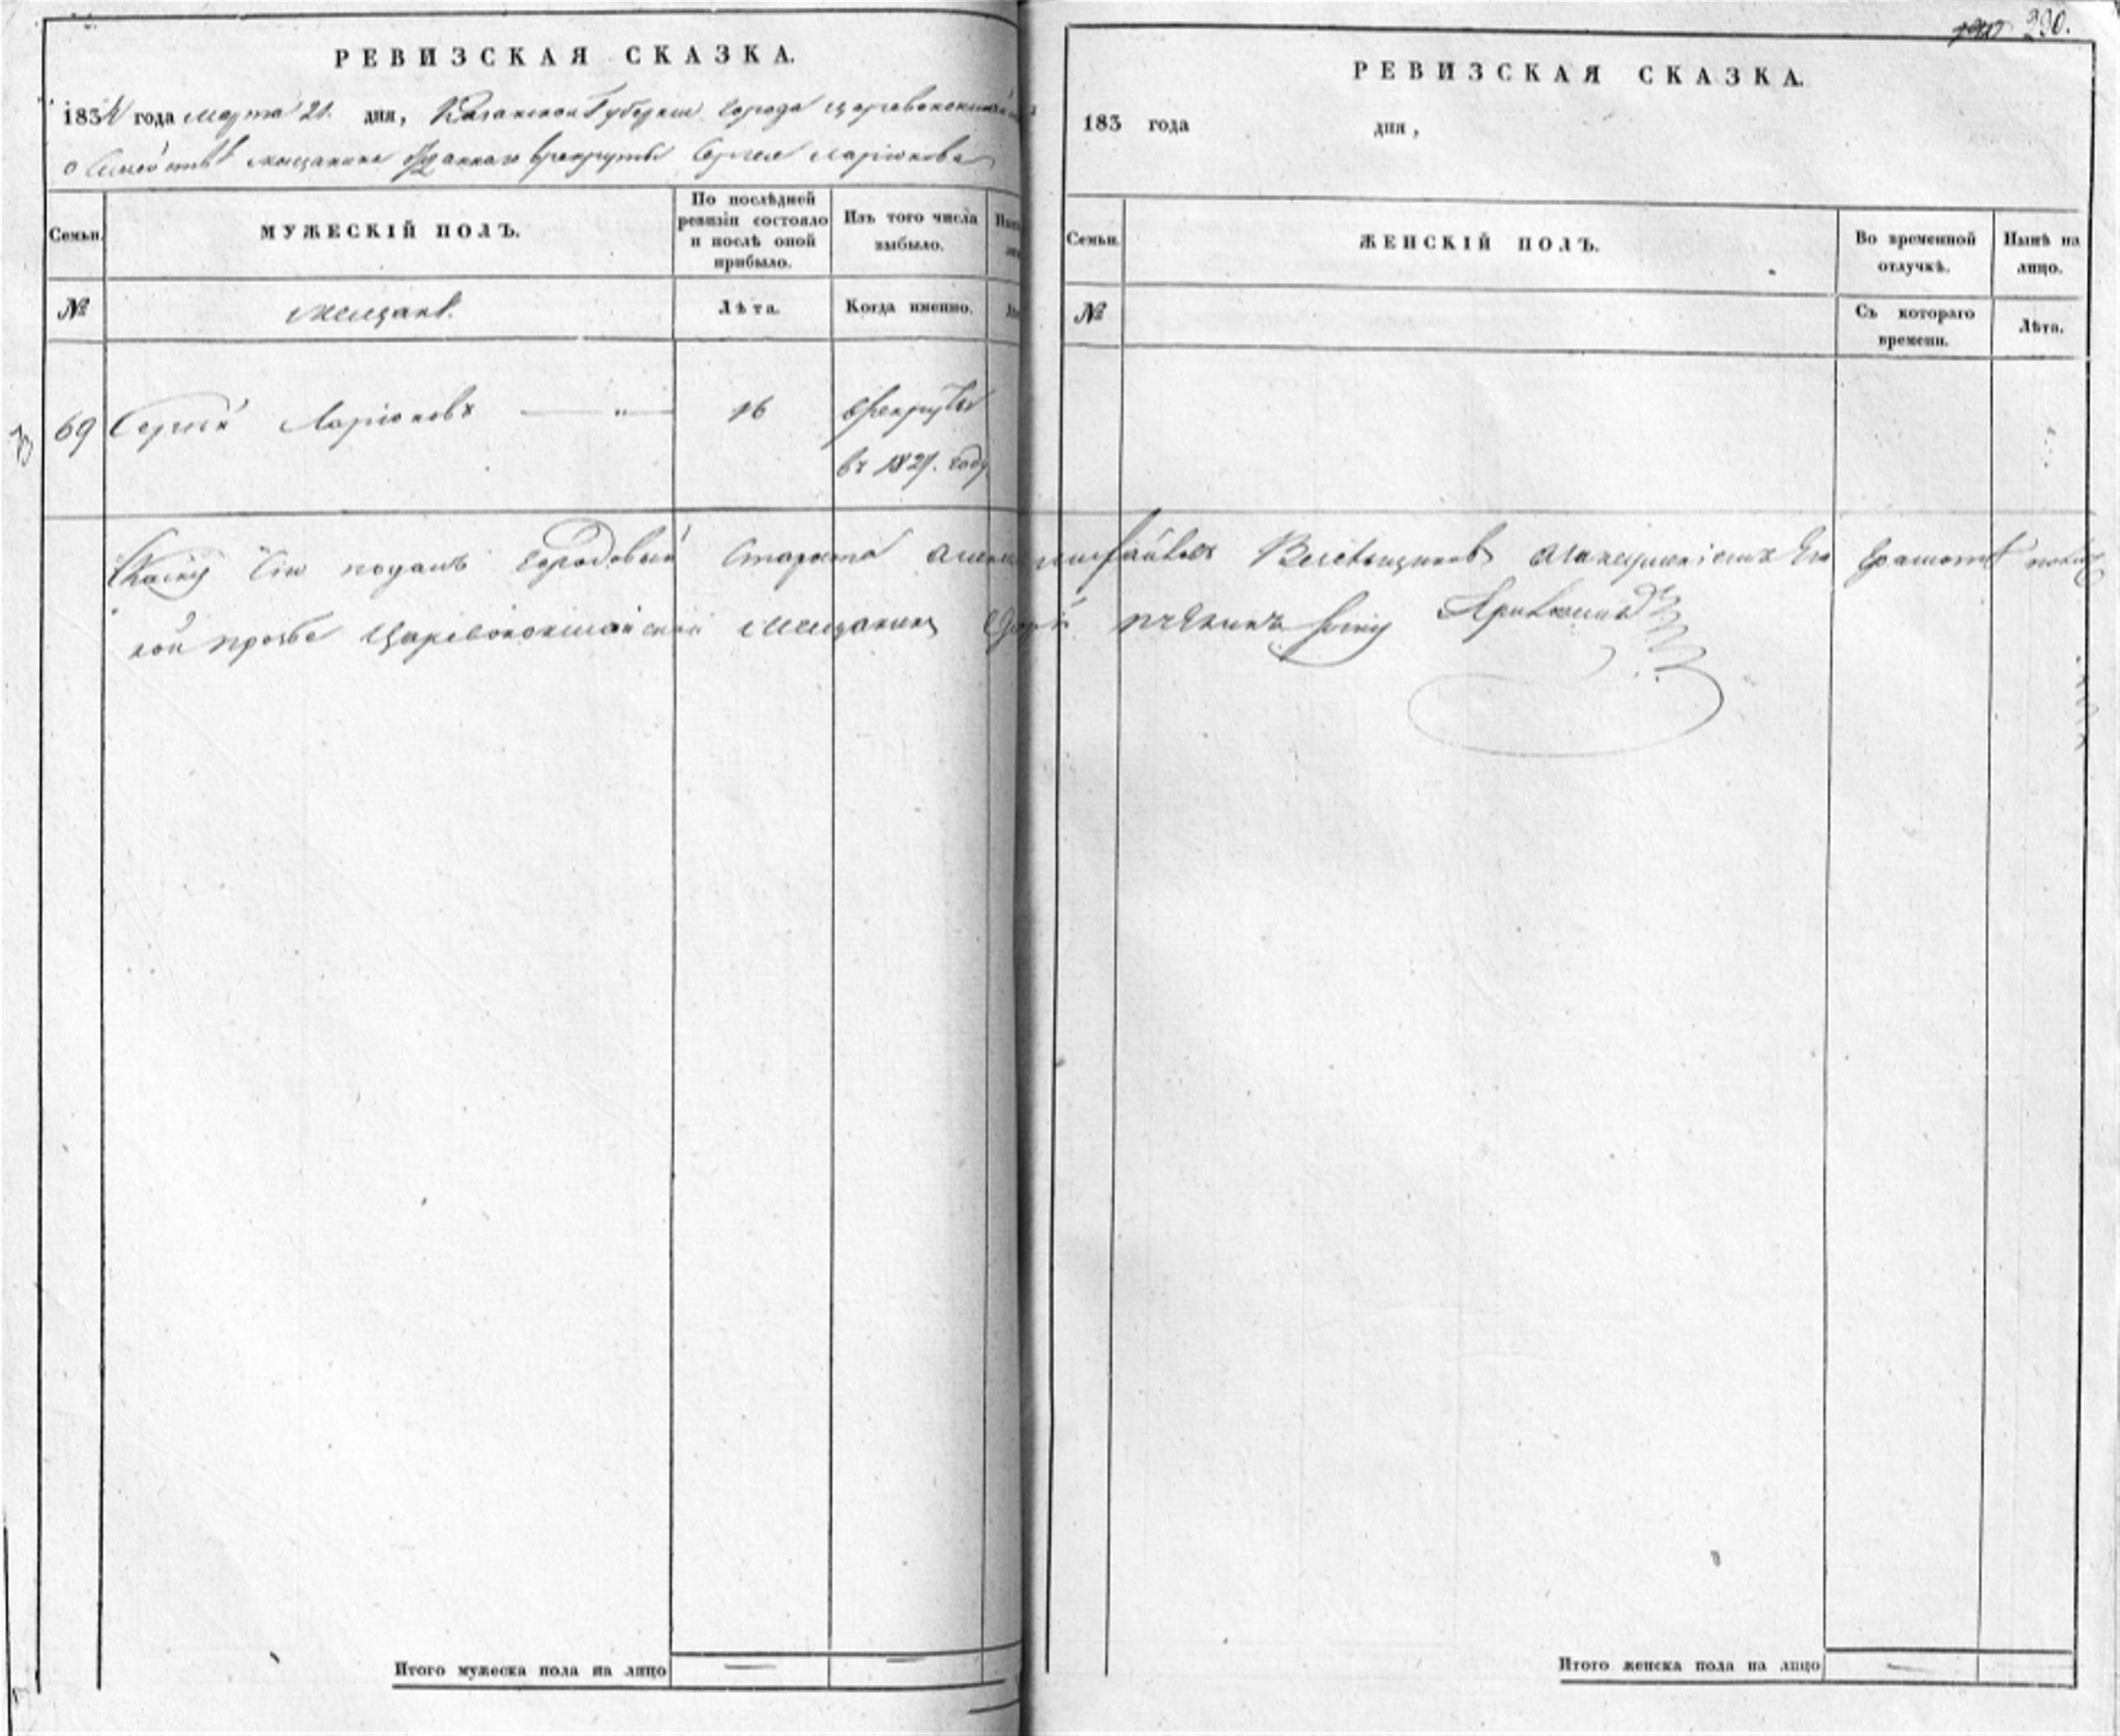 РЕВИЗСКАЯ СКАЗКА.
1834 года Марта 21. дня, Казанской Губернии города Царевококшайска
о Семействѣ мещанина отданнаго врекруты Сергея Ларіонова
Семьи.
МУЖЕСКІЙ ПОЛЪ.
По послѣдней ревизіи состояло и послѣ оной прибыло.
Изъ того числа выбыло.
№
мещанѣ.
Лѣта.
Когда именно.
69 Сергей Ларіоновъ — „ — 16 врекруты
въ 1827. году
Скаску Сію подалъ городовый Староста
кой прозбе Царевококшайской Мещанинъ
Итого мужеска пола на лицо
290.
РЕВИЗСКАЯ СКАЗКА.
183 года дня,
Семьи.
ЖЕНСКІЙ ПОЛЪ.
Во временной отлучкѣ.
Нынѣ на лицо.
№
Съ котораго времени.
Лѣта.
анеумениемъ Его Грамоте
руку Приложилъ
Итого женска пола на лицо